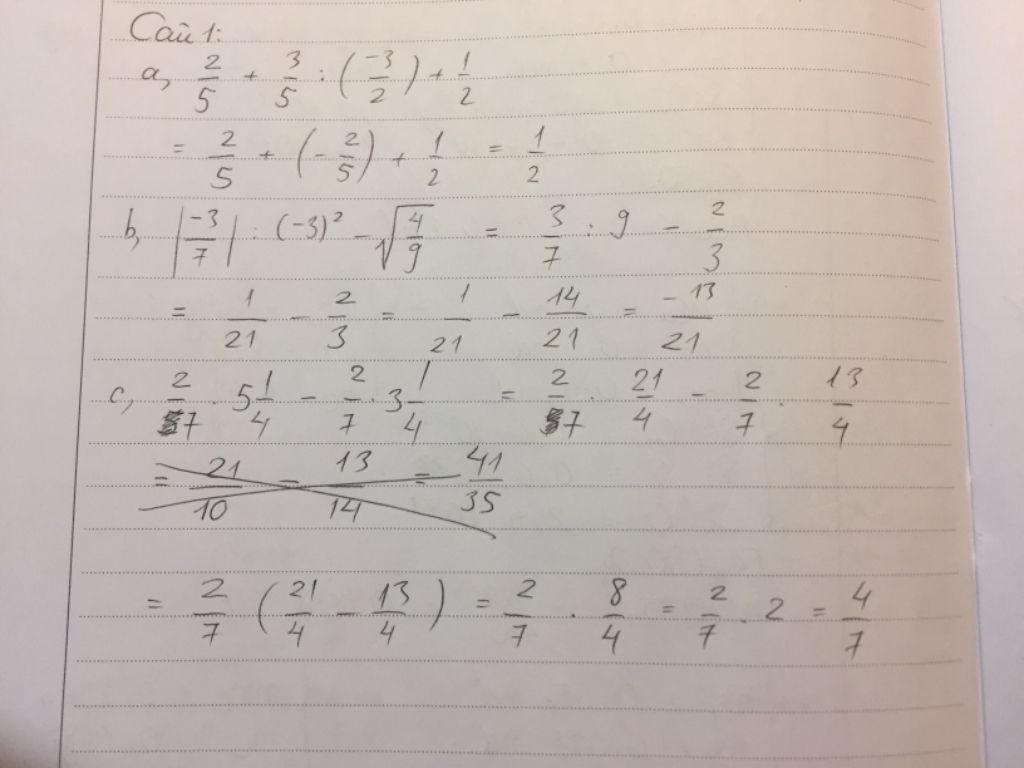 Câu 1:
a, 2/5 + 3/5 : (-3/2) + 1/2
= 2/5 + (-2/5) + 1/2 = 1/2
b, |-3/7| : (-3)² - √(4/9) = 3/7 : 9 - 2/3
= 1/21 - 2/3 = 1/21 - 14/21 = -13/21
c, 2/7 . 5 1/4 - 2/7 . 3 1/4 = 2/7 . 21/4 - 2/7 . 13/4
= 21/10 - 13/14 = 41/35
= 2/7 (21/4 - 13/4) = 2/7 . 8/4 = 2/7 . 2 = 4/7